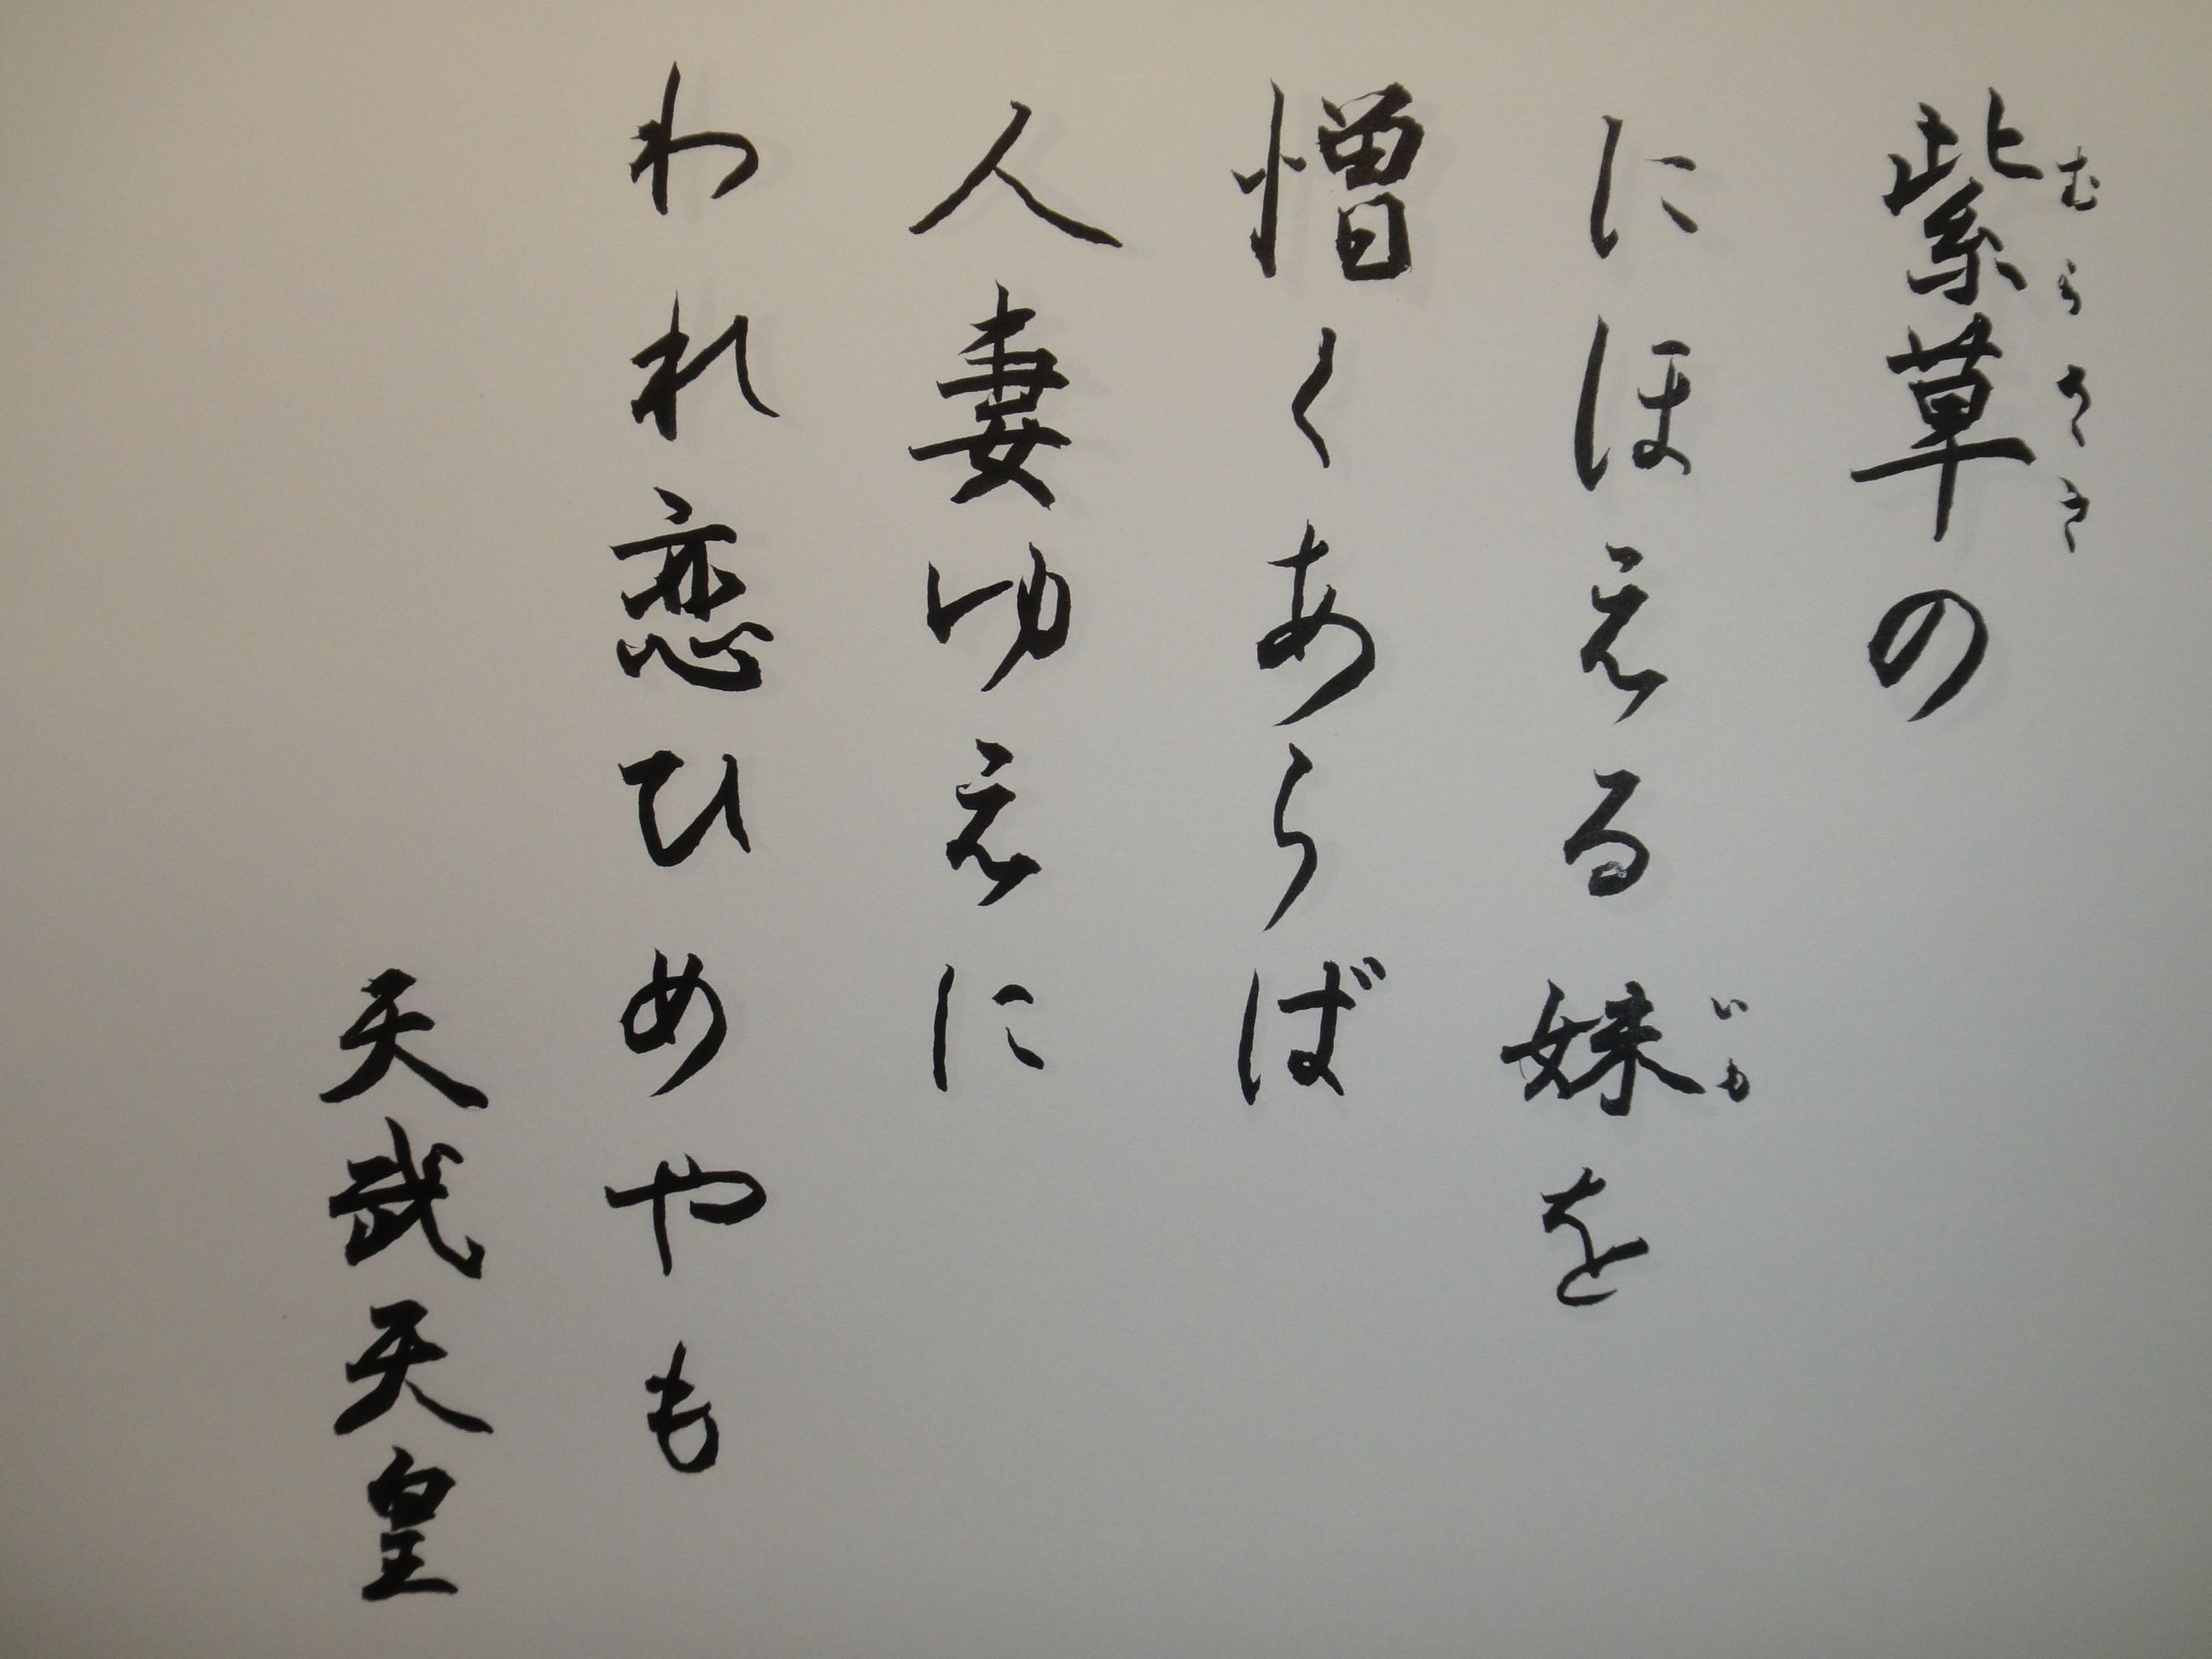 紫草の
むらさき
にほえる妹を
いも
憎くあらば
人妻ゆえに
われ恋ひめやも
天武天皇